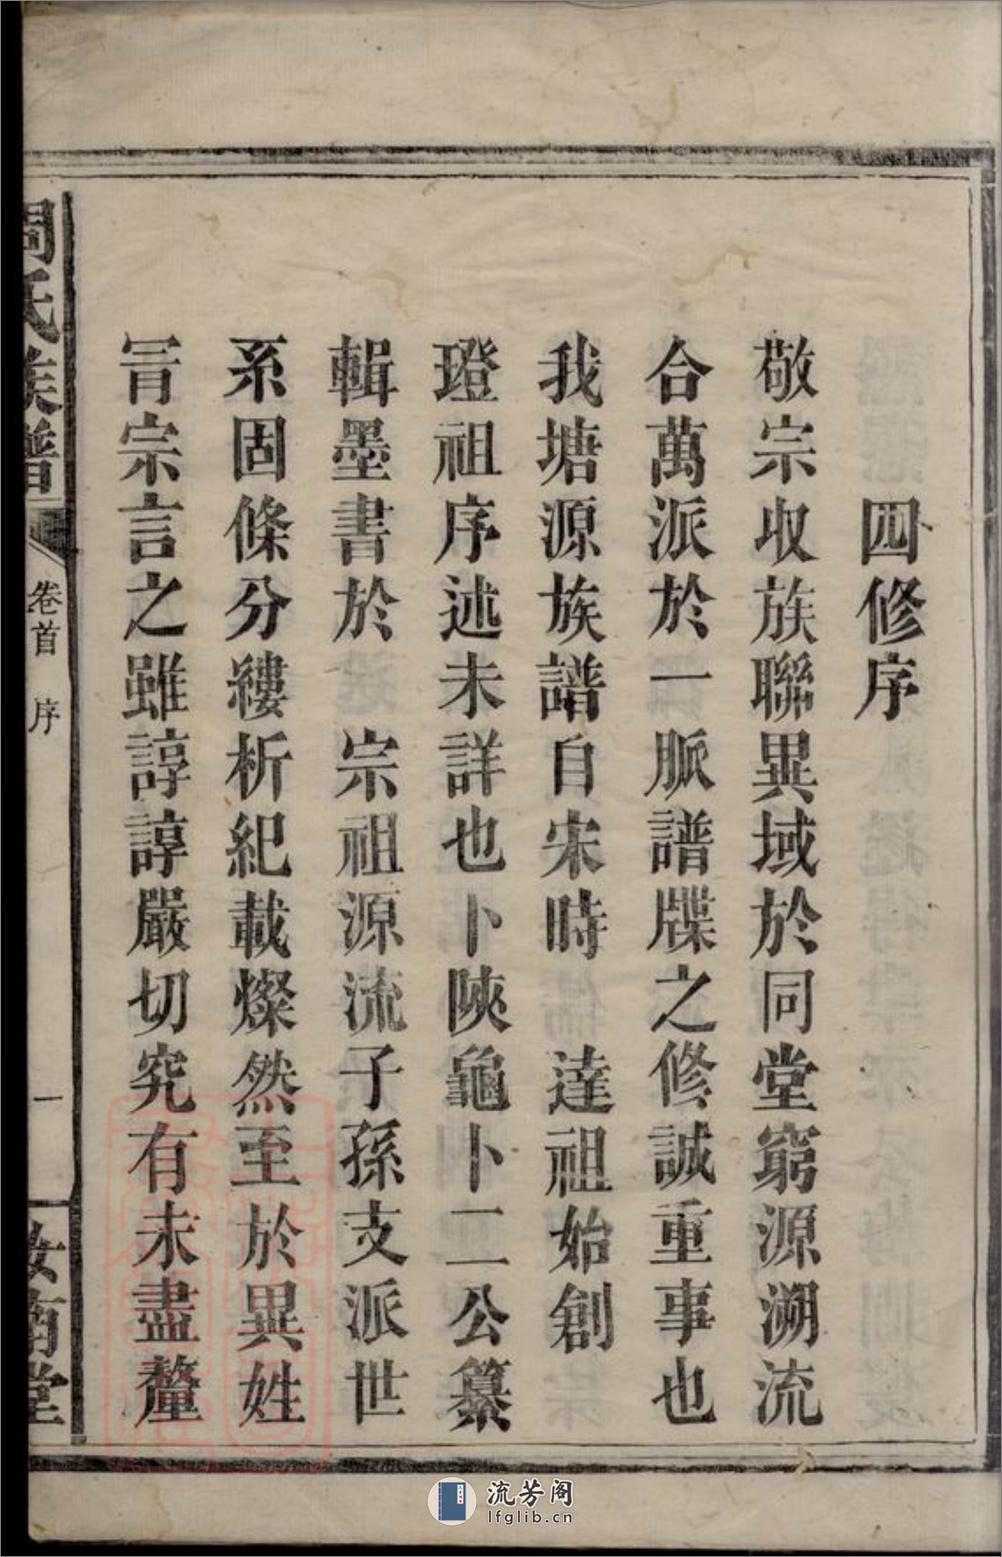 四修序
敬宗收族聯異域於同堂窮源溯流
合萬派於一脈譜牒之修誠重事也
我塘源族譜自宋時　達祖始創
璒祖序述未詳也卜陝龜卜二公纂
輯墨書於　宗祖源流子孫支派世
系固條分縷析紀載燦然至於異姓
冐宗言之雖諄諄嚴切究有未盡釐
周氏族譜
卷首　序
一
汝南堂
流芳阁
lfglib.cn